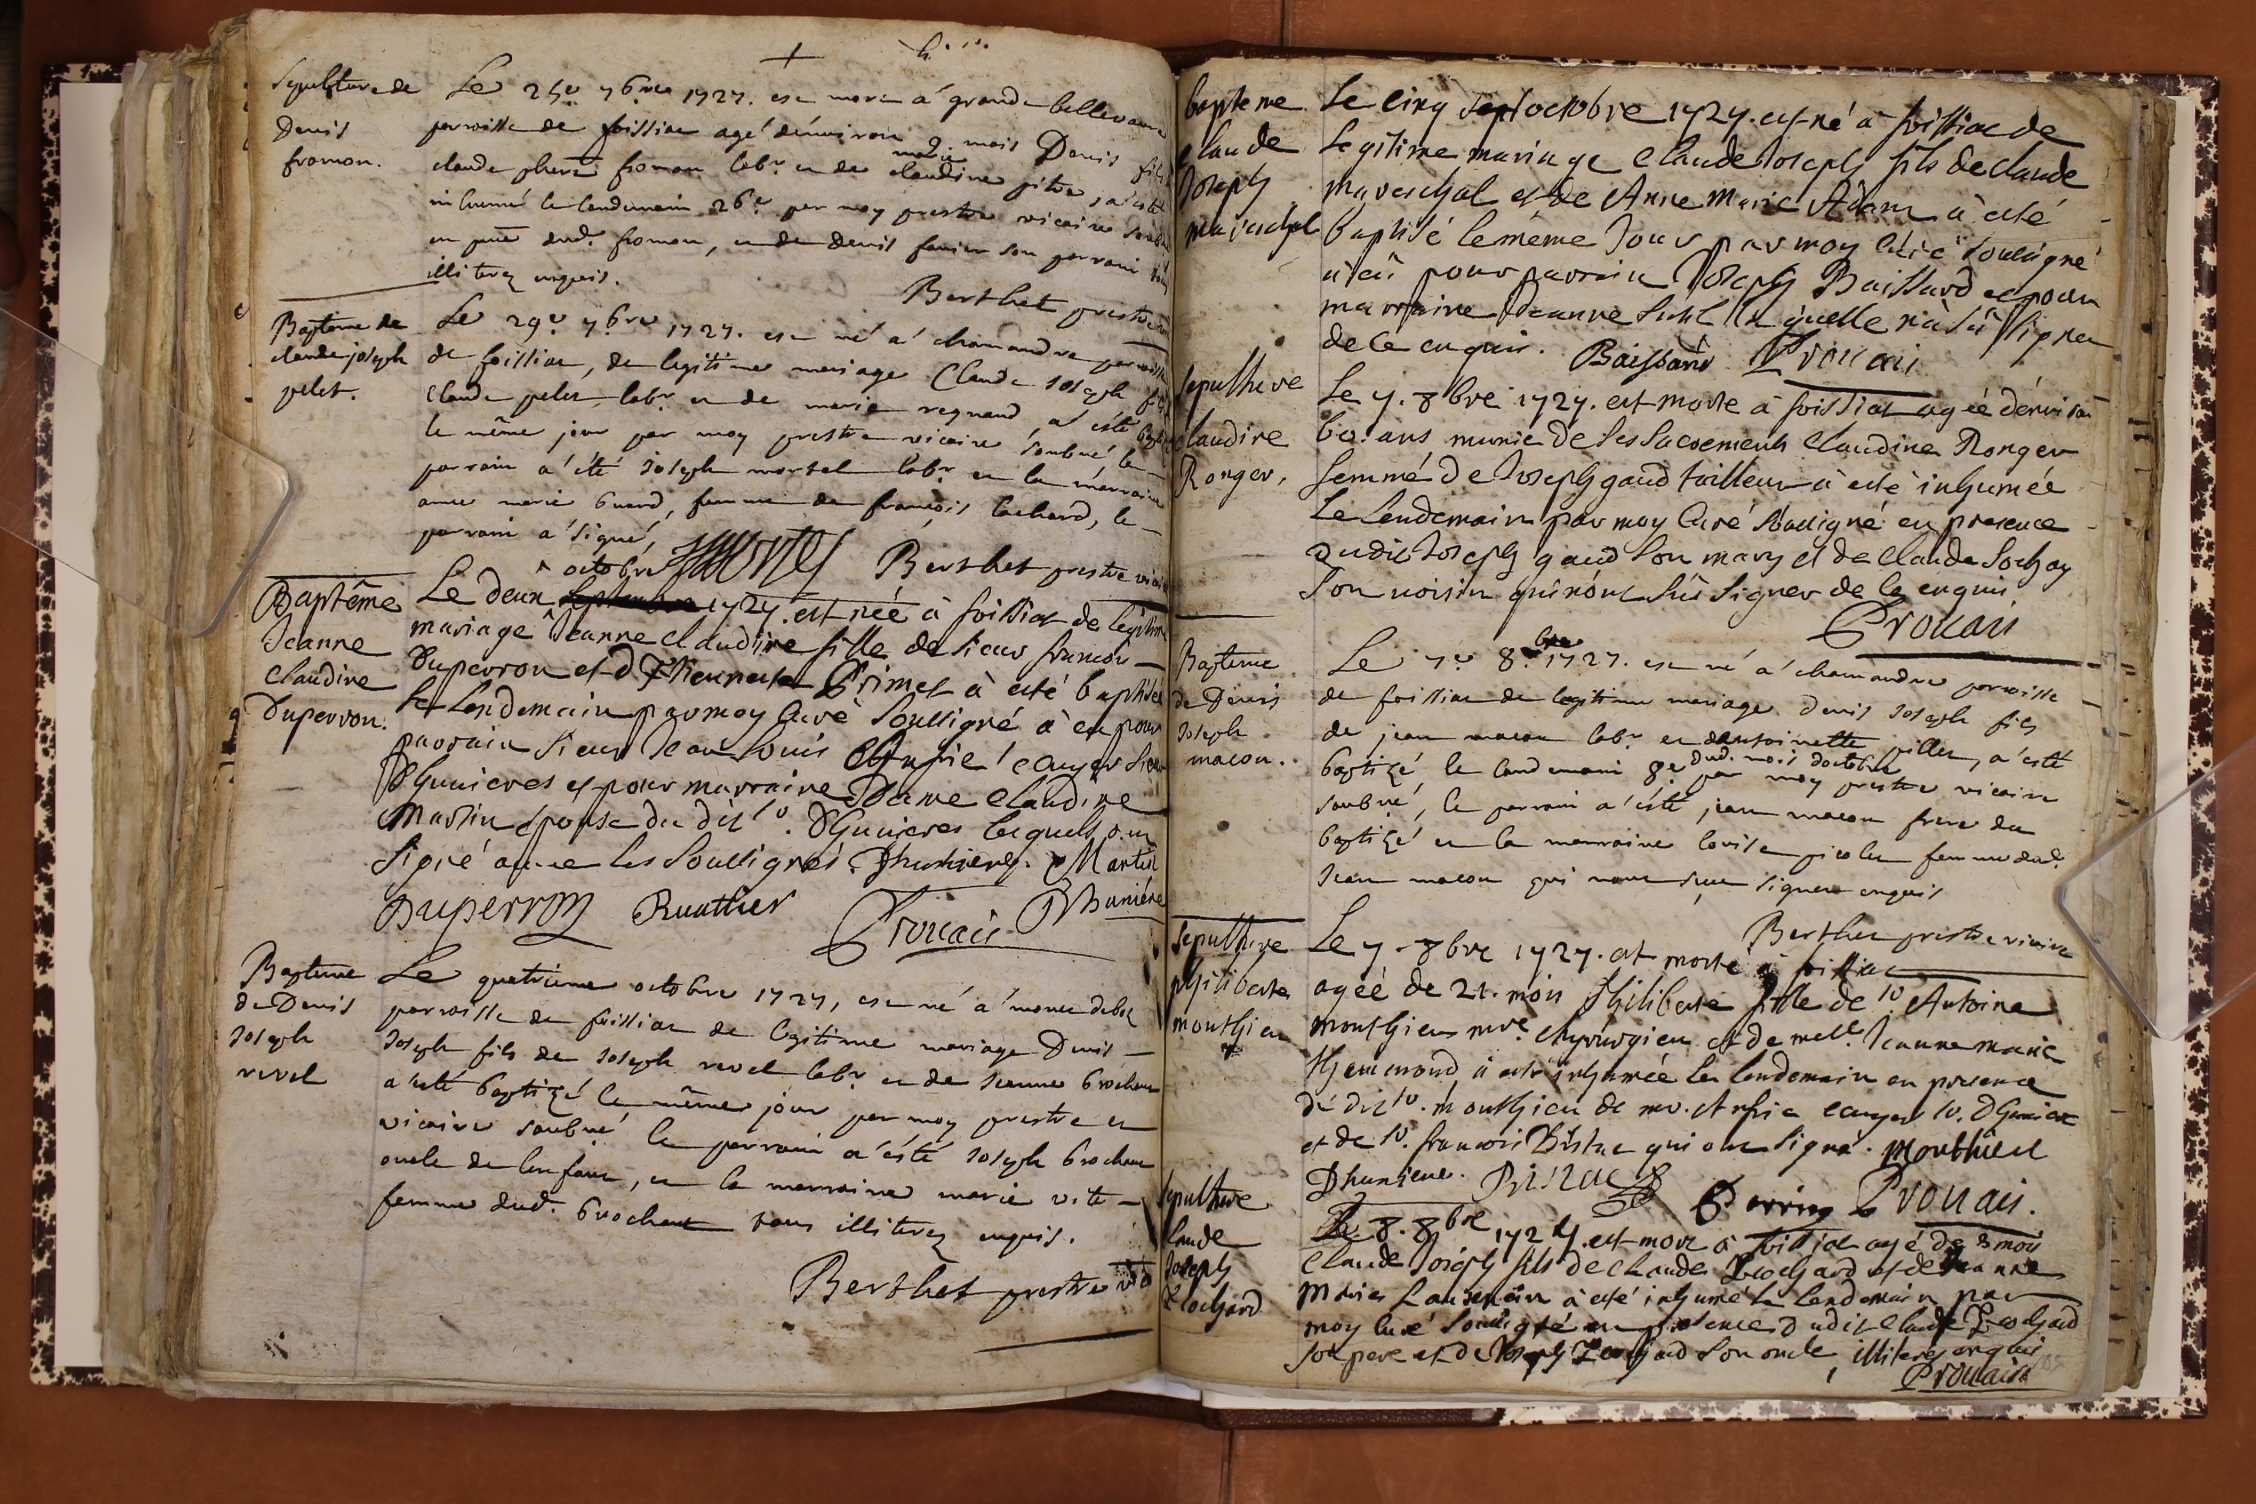 Sepulture de
Denis
fromon.
Le 25e 7bre 1727. est mort a grande bellevavre
parroisse de foissiac agé denviron 9. mois Denis fils
claude phert fromon labr. et de marie claudine pitre, a esté
inhumé le lendemain 26e par moy prestre vicaire soubné
en pnce dud. fromon, et de denis favier son parrain tous
illiterez enquis.
Berthet prestre
Baptême de
claude joseph
pelet.
Le 29e 7bre 1727. est né a chamandre parroisse
de foissiac, de legitime mariage Claude joseph fils
Claude pelet labr. et de marie regnaud, a esté baptizé
le même jour par moy prestre vicaire soubné, le
parrain a été joseph mortel labr. et la marraine
anne marie buard, femme de françois lachard, le
parrain a signé,
J MORTEL Berthet prestre vicaire
Baptême
Jeanne
Claudine
Duperron.
octobre
Le deux septembre 1727. est née à foissiat de legitime
mariage Jeanne Claudine fille de sieur francois
Duperron et d'Thiennette Primet à esté baptisée
le Lendemain par moy Curé Soussigné à eu pour
parrain sieur Jean Louis ecuyer sieur
Dhunieres et pour marraine Dame Claudine
Martin epouse du dit sr. Dhunieres lesquels ont
signé avec les soussignés. Dhunieres. Martin
Duperron Ruathier Prouais Dhuniere
Bapteme
de Denis
Joseph
revel
Le quatrieme octobre 1727, est né a
parroisse de foissiac de legitime mariage Denis
Joseph fils de Joseph revel labr. et de jeanne brochant
a esté baptizé le même jour par moy prestre et
vicaire soubné le parrain a esté joseph brochant
oncle de lenfant, et la marraine marie vite
femme dud. brochant tous illiterez enquis.
Berthet prestre vic
bapteme
Claude
Joseph
mareschal
Le cinq sept octobre 1727. est né à foissiac de
Legitime mariage Claude Joseph fils de claude
mareschal et de Anne Marie Adam à esté
baptisé le même Jour par moy Curé soussigné
a eu pour parrain Joseph Baissard et pour
marraine Jeanne la quelle n'a sû signer
de ce enquis. Baissard Prouais
Sepulture
Claudine
Ronger,
Le 7. 8bre 1727. est morte à foissiat agée d'environ
60. ans munie de ses sacrements Claudine Ronger
femme de Joseph gaud tailleur à esté inhumée
Le Lendemain par moy Curé Soussigné en presence
dudit Joseph gaud son mary et de Claude Sochay
son voisin qui n'ont sû signer de ce enquis
Prouais
Bapteme
de Denis
Joseph
macon.
Le 7e 8bre 1727. est né a chamandre parroisse
de foissiac de legitime mariage Denis Joseph fils
de jean macon labr. et dantoinette pillet, a esté
baptizé, le landemain 8e dud. mois doctobre par moy prestre vicaire
soubné, le parrain a esté jean macon frere du
baptizé et la marraine lovise picolet femme dud.
Jean macon qui nont sceu signer enquis
Berthet prestre vicaire
Sepulture
philiberte
monthieu
Le 7. 8bre 1727. est morte à foissiac
agée de 21. mois Philiberte fille de sr Antoine
Monthieu mre. chyrurgien et de melle. Jeanne marie
à esté inhumée le lendemain en presence
du dit sr. monthieu de mr. ecuyer sr. Dhuniere
et de sr. francois Bistac qui ont signé. Monthieu
Dhuniere. BISTAC Perrin Prouais.
Sepulture
Claude
Joseph
Lochard
Le. 8. 8bre 1727. est mort à foissiat agé de 3 mois
Claude Joseph fils de claude Lochard et de Jeanne
Marie à esté inhumé le lendemain par
moy Curé soussigné en presence dudit Claude Lochard
son pere et de Joseph Lochard son oncle, illiteres enquis
Prouais